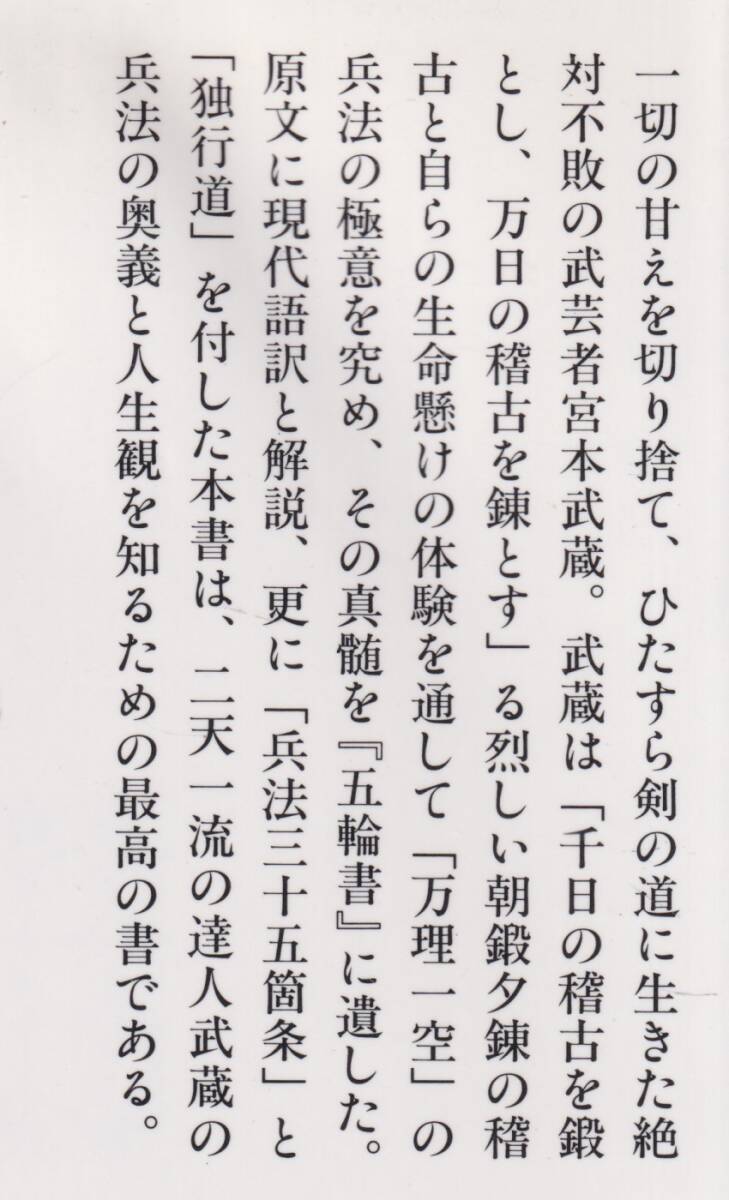 一切の甘えを切り捨て、ひたすら剣の道に生きた絶
対不敗の武芸者宮本武蔵。武蔵は「千日の稽古を鍛
とし、万日の稽古を錬とす」る烈しい朝鍛夕錬の稽
古と自らの生命懸けの体験を通して「万理一空」の
兵法の極意を究め、その真髄を『五輪書』に遺した。
原文に現代語訳と解説、更に「兵法三十五箇条」と
「独行道」を付した本書は、二天一流の達人武蔵の
兵法の奥義と人生観を知るための最高の書である。